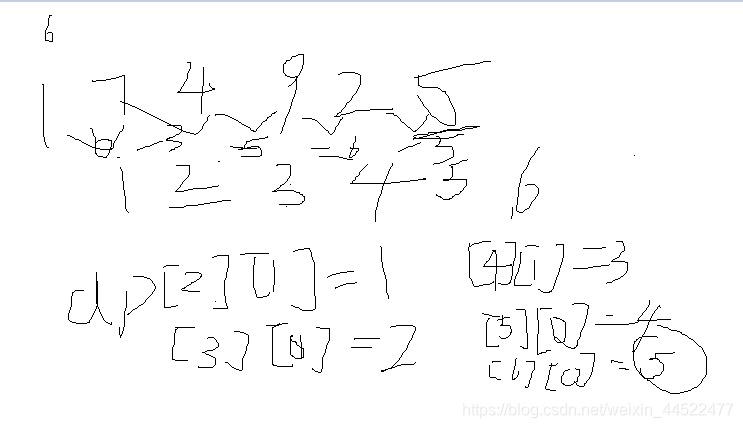 6
1 7 4 9 2 5
6 -3 5 -6 3
1 2 3 4 5 6
dp[2][0]=1 [4][1]=3
[3][1]=2 [5][0]=4
[6][0]=5
https://blog.csdn.net/weixin_44522477